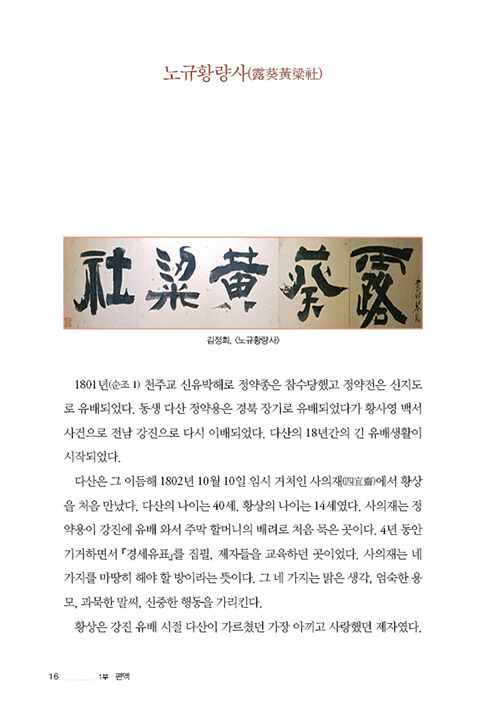 노규황량사(露葵黃粱社)
社粱黄葵露
김정희, 〈노규황량사〉
1801년(순조 1) 천주교 신유박해로 정약종은 참수당했고 정약전은 신지도
로 유배되었다. 동생 다산 정약용은 경북 장기로 유배되었다가 황사영 백서
사건으로 전남 강진으로 다시 이배되었다. 다산의 18년간의 긴 유배생활이
시작되었다.
다산은 그 이듬해 1802년 10월 10일 임시 거처인 사의재(四宜齋)에서 황상
을 처음 만났다. 다산의 나이는 40세, 황상의 나이는 14세였다. 사의재는 정
약용이 강진에 유배 와서 주막 할머니의 배려로 처음 묵은 곳이다. 4년 동안
기거하면서 『경세유표』를 집필, 제자들을 교육하던 곳이었다. 사의재는 네
가지를 마땅히 해야 할 방이라는 뜻이다. 그 네 가지는 맑은 생각, 엄숙한 용
모, 과묵한 말씨, 신중한 행동을 가리킨다.
황상은 강진 유배 시절 다산이 가르쳤던 가장 아끼고 사랑했던 제자였다.
16 1부 편액